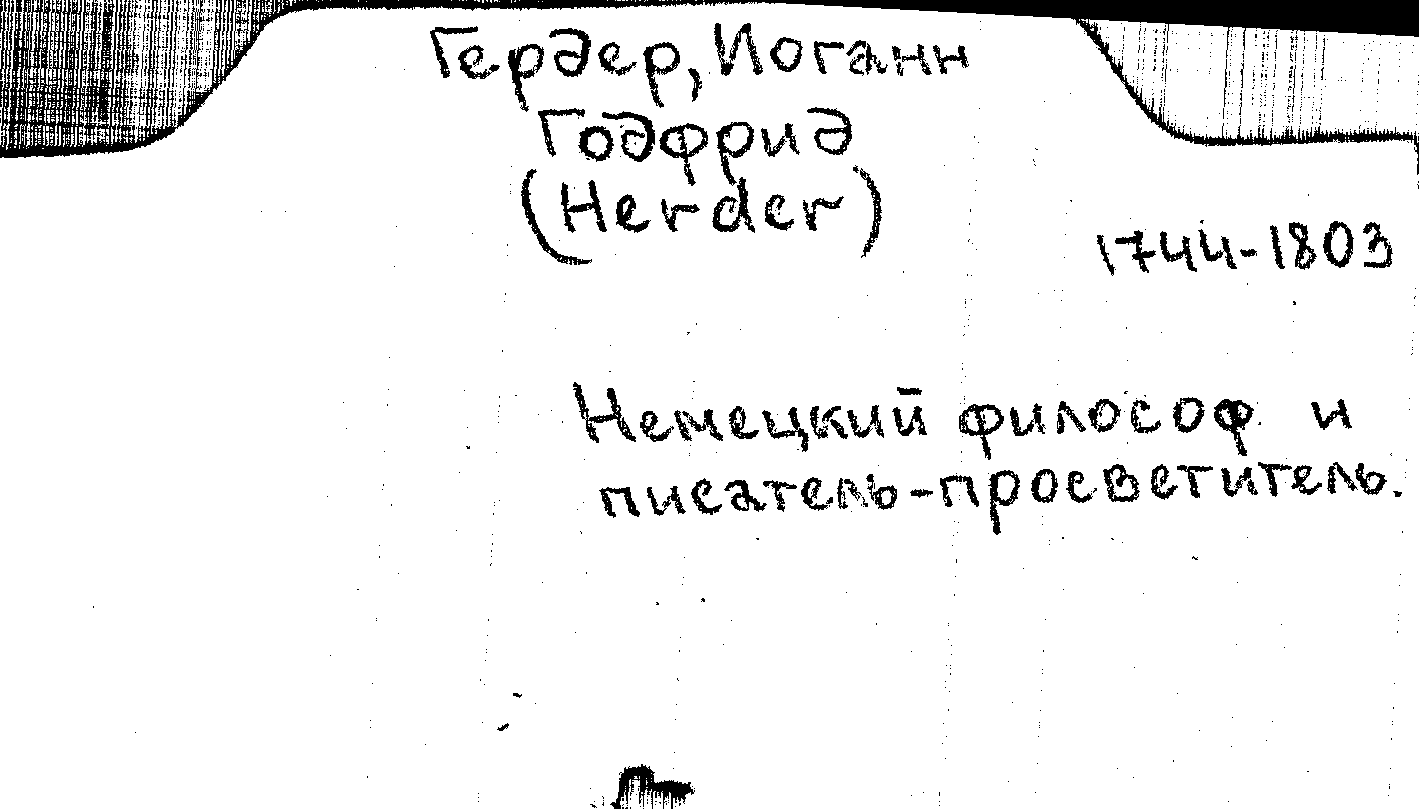 Гердер, Иоганн
Годфрид
(Herder)
1744-1803
Немецкий философ и
писатель-просветитель.